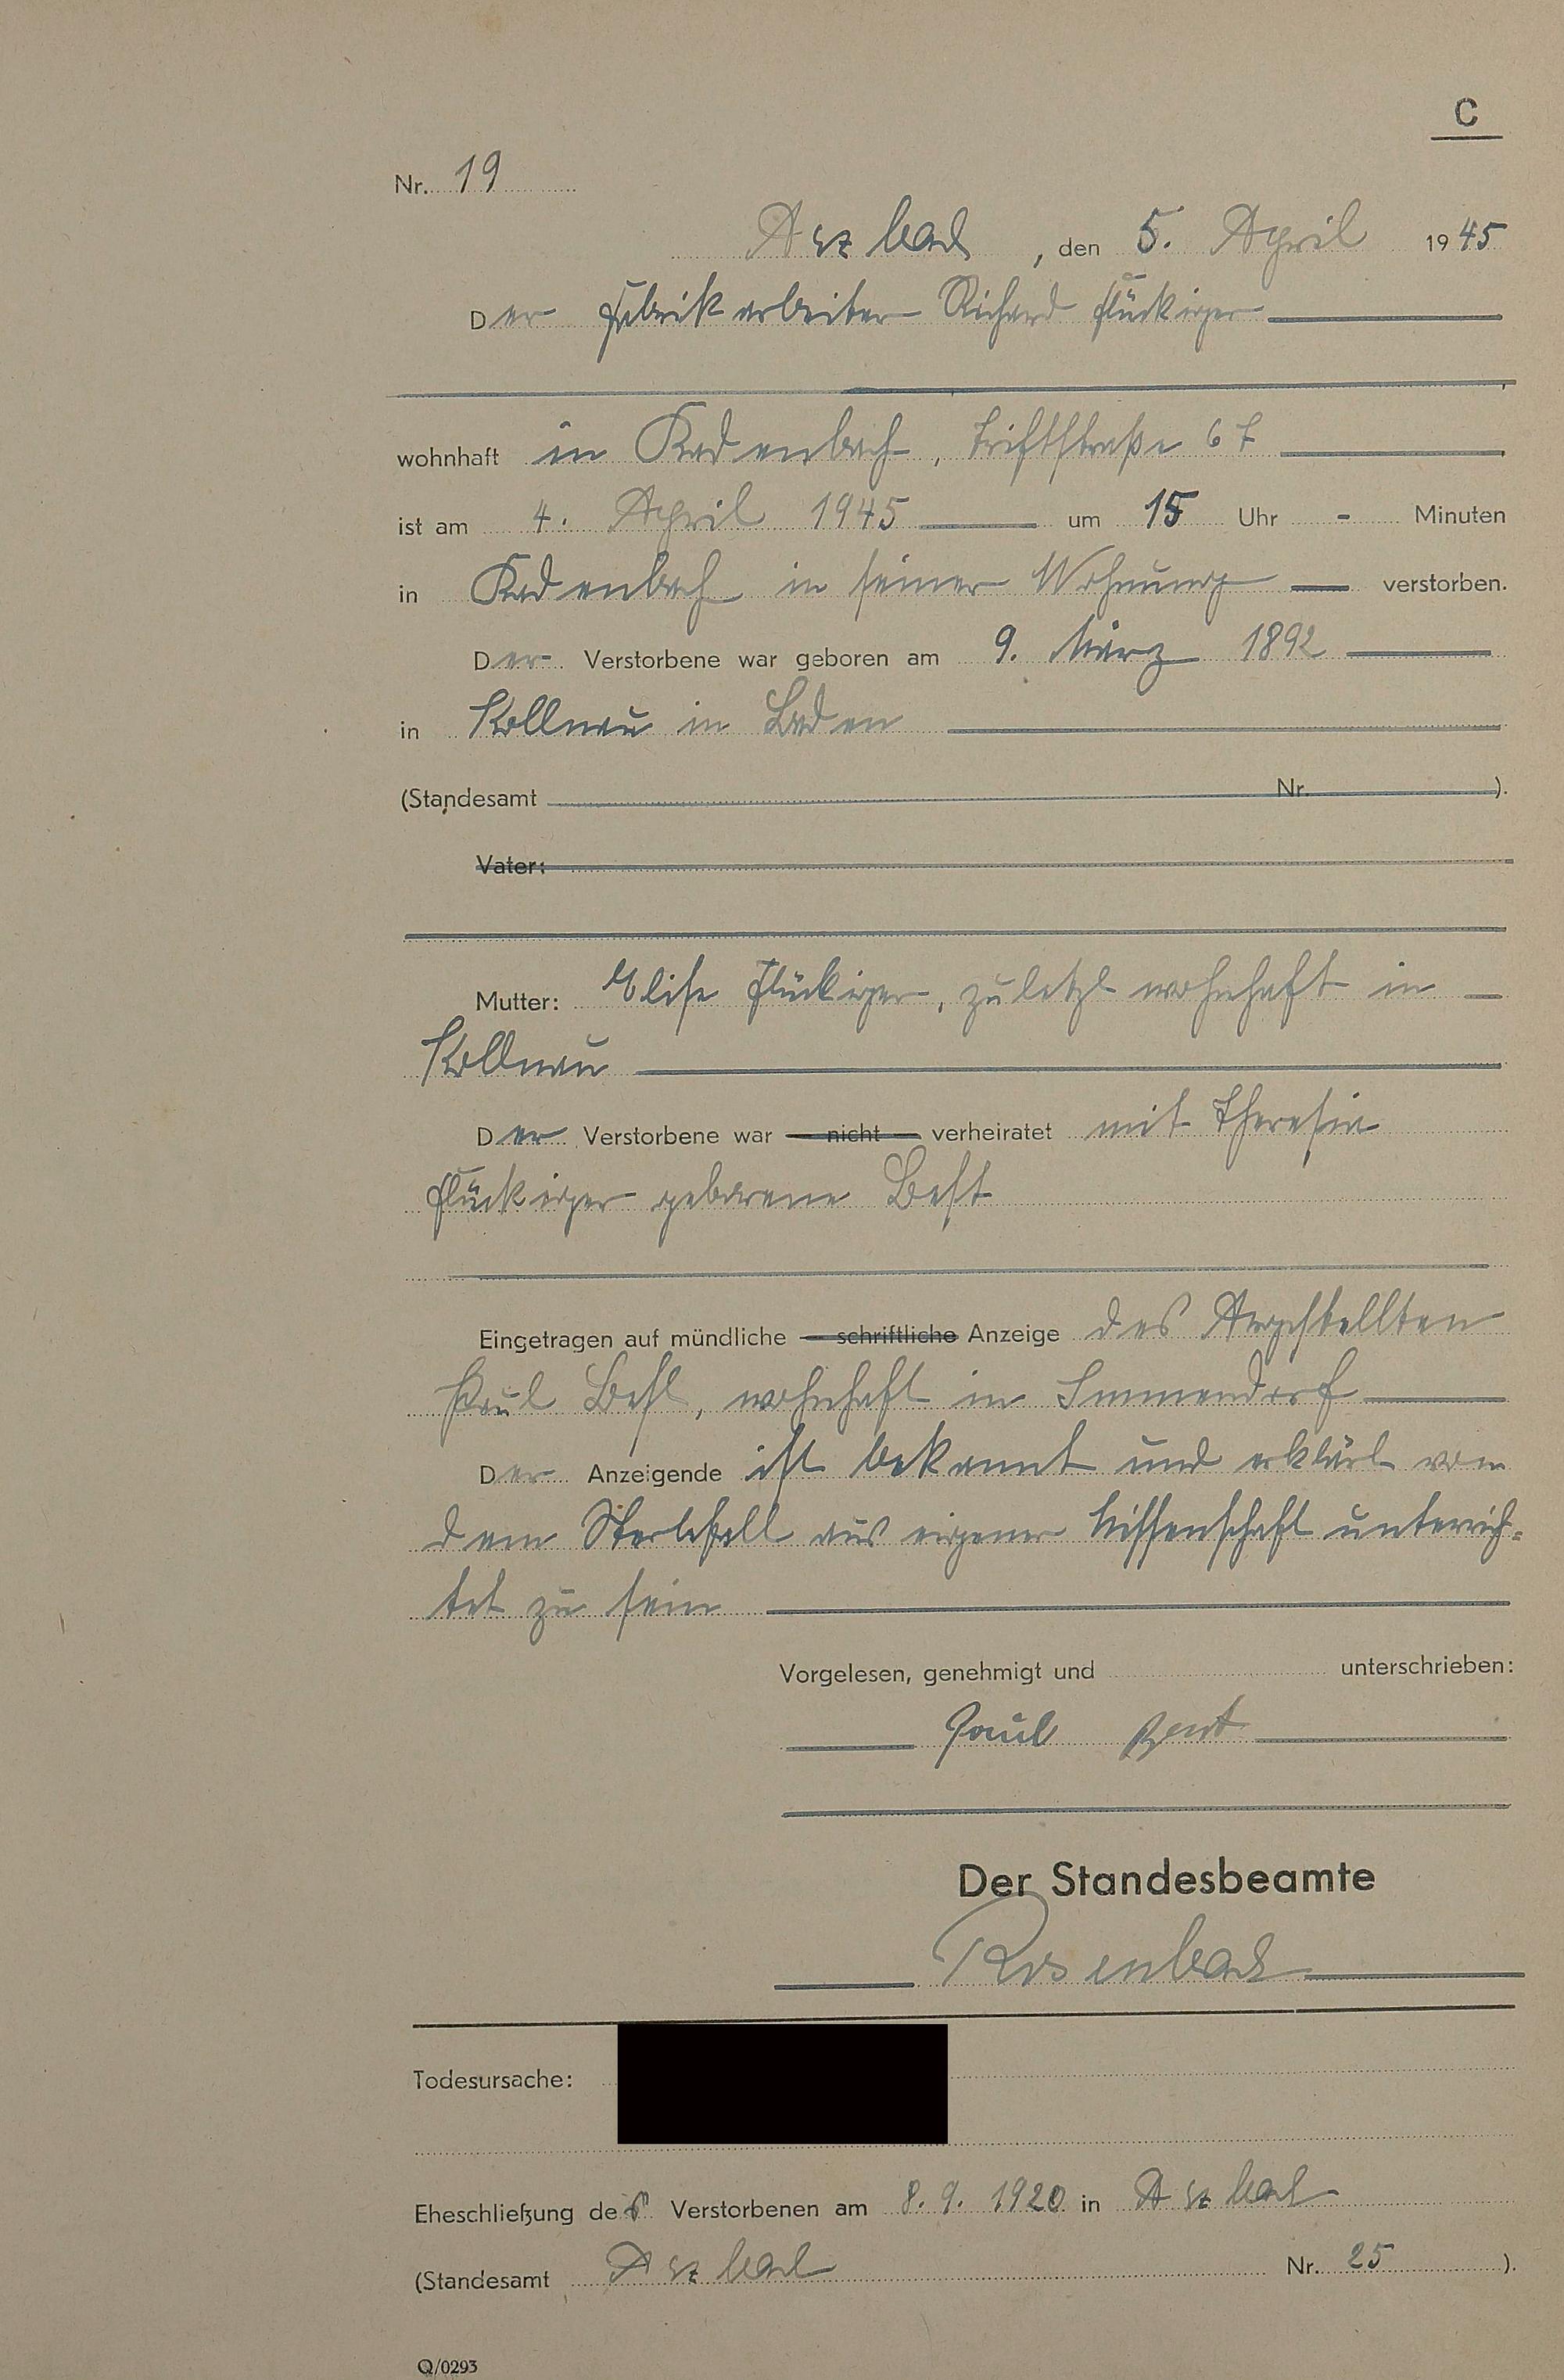 C
Nr. 19
Arzbach, den 5. April 1945
Der Fabrikarbeiter Richard Flückiger
wohnhaft in Kadenbach, Triftstraße 67
ist am 4. April 1945 um 15 Uhr - Minuten
in Kadenbach in seiner Wohnung verstorben.
Der Verstorbene war geboren am 9. März 1892
in Kollnau in Baden
(Standesamt Nr. ).
Vater:
Mutter: Elise Flückiger, zuletzt wohnhaft in
Kollnau
Der Verstorbene war nicht verheiratet mit Theresia
Flückiger geborene Best
Eingetragen auf mündliche schriftliche Anzeige des Angestellten
Paul Best, wohnhaft in Immendorf
Der Anzeigende ist bekannt und erklärt von
dem Sterbefall aus eigener Wissenschaft unterrich-
tet zu sein
Vorgelesen, genehmigt und unterschrieben:
Paul Best
Der Standesbeamte
Rosenbach
Todesursache:
Eheschließung des Verstorbenen am 8.9.1920 in Arzbach
(Standesamt Arzbach Nr. 25 ).
Q/0293